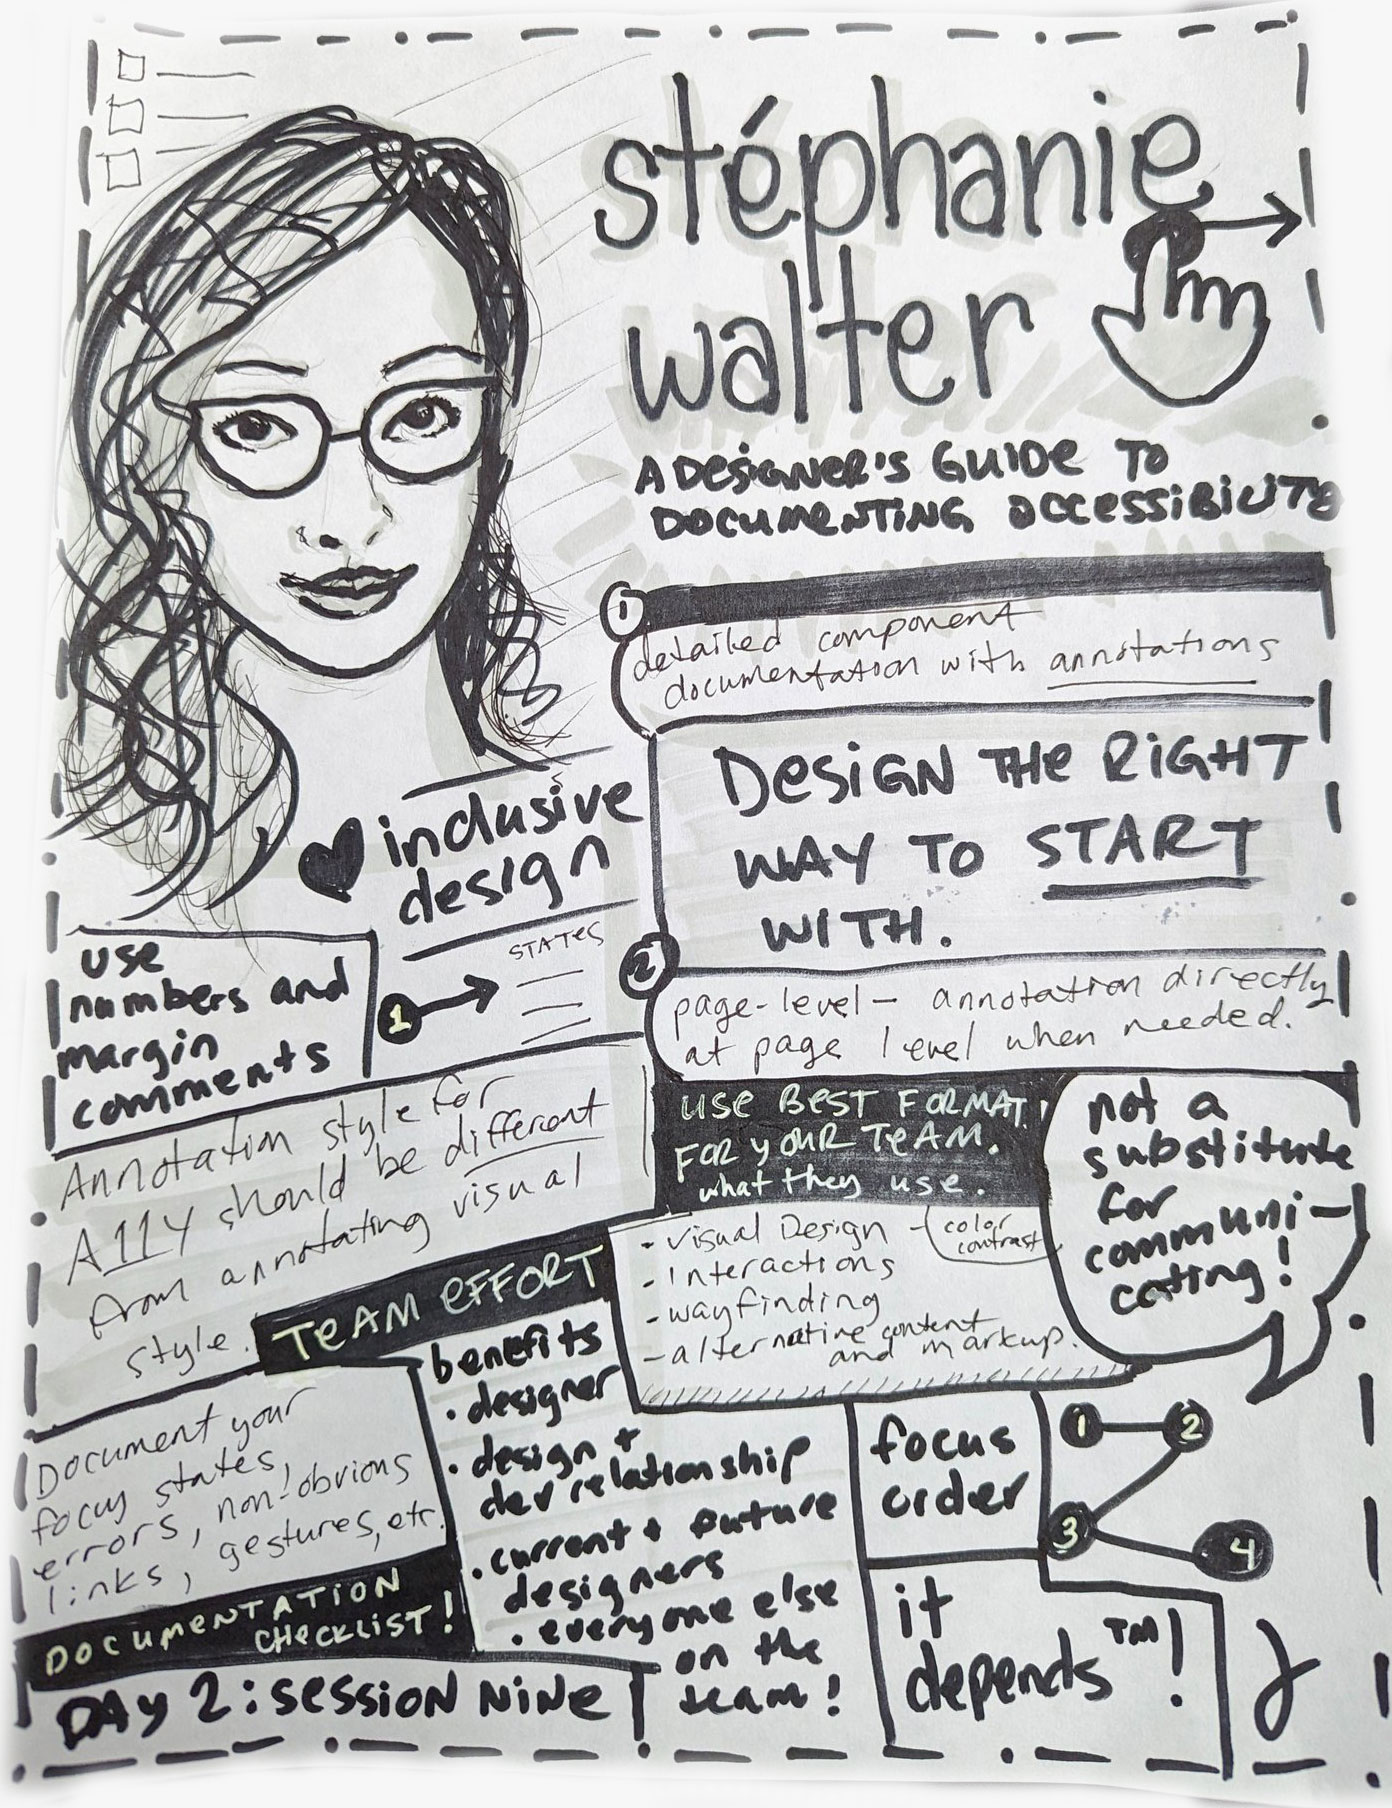 stéphanie
walter
A DESIGNER'S GUIDE TO
DOCUMENTING ACCESSIBILITY
1
detailed component
documentation with annotations
DESIGN THE RIGHT
WAY TO START
WITH.
2
page-level - annotation directly
at page level when needed.
USE BEST FORMAT!
FOR YOUR TEAM.
what they use.
not a
substitute
for
communi-
cating!
- Visual Design - (color
contrast
- Interactions
- wayfinding
- alternative content
and markup.
♥ inclusive
design
use
numbers and
margin
comments
1
STATES
Annotation style for
A11Y should be different
from annotating visual
style.
TEAM EFFORT
benefits
• designer
• design +
dev relationship
• current + future
designers
• everyone else
on the
team!
Document your
focus states,
errors, non-obvious
links, gestures, etc.
DOCUMENTATION
CHECKLIST!
DAY 2: SESSION NINE
focus
order
1
2
3
4
it
depends™!